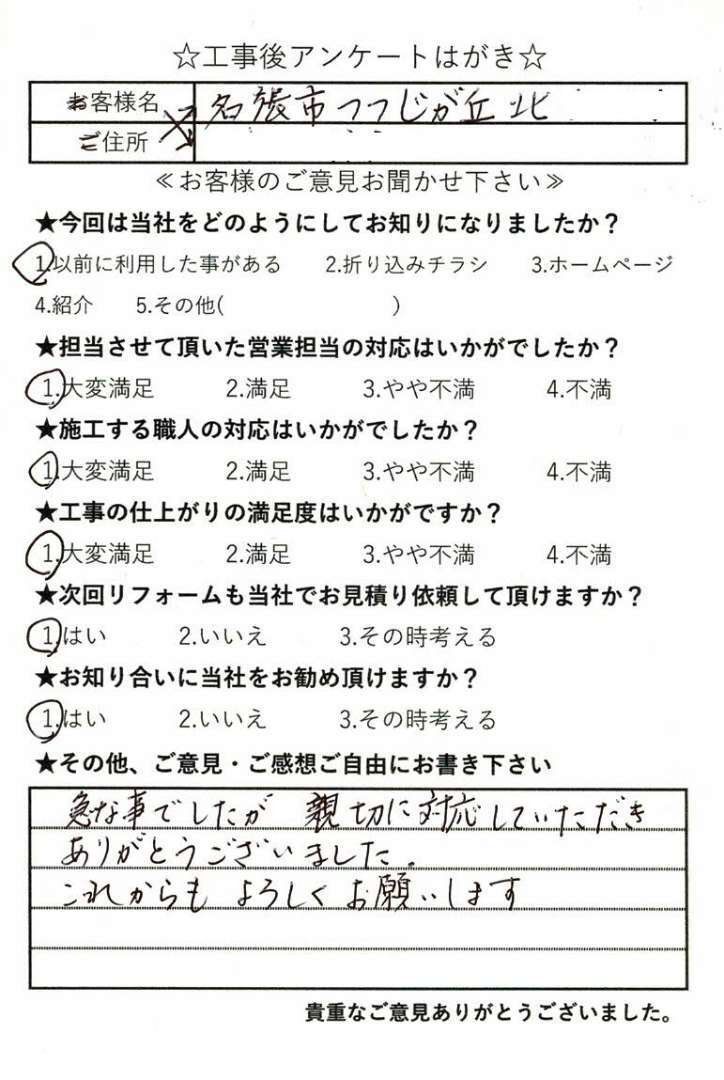 ☆工事後アンケートはがき☆
お客様名 名張市つつじが丘北
ご住所
≪お客様のご意見お聞かせ下さい≫
★今回は当社をどのようにしてお知りになりましたか？
1.以前に利用した事がある 2.折り込みチラシ 3.ホームページ
4.紹介 5.その他( )
★担当させて頂いた営業担当の対応はいかがでしたか？
1.大変満足 2.満足 3.やや不満 4.不満
★施工する職人の対応はいかがでしたか？
1.大変満足 2.満足 3.やや不満 4.不満
★工事の仕上がりの満足度はいかがですか？
1.大変満足 2.満足 3.やや不満 4.不満
★次回リフォームも当社でお見積り依頼して頂けますか？
1.はい 2.いいえ 3.その時考える
★お知り合いに当社をお勧め頂けますか？
1.はい 2.いいえ 3.その時考える
★その他、ご意見・ご感想ご自由にお書き下さい
急な事でしたが 親切に対応していただき
ありがとうございました。
これからも よろしくお願いします
貴重なご意見ありがとうございました。